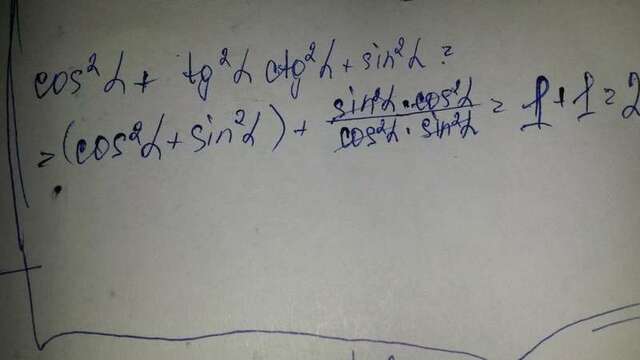 cos²α + tg²α ctg²α + sin²α =
= (cos²α + sin²α) + sin²α · cos²α / cos²α · sin²α = 1 + 1 = 2